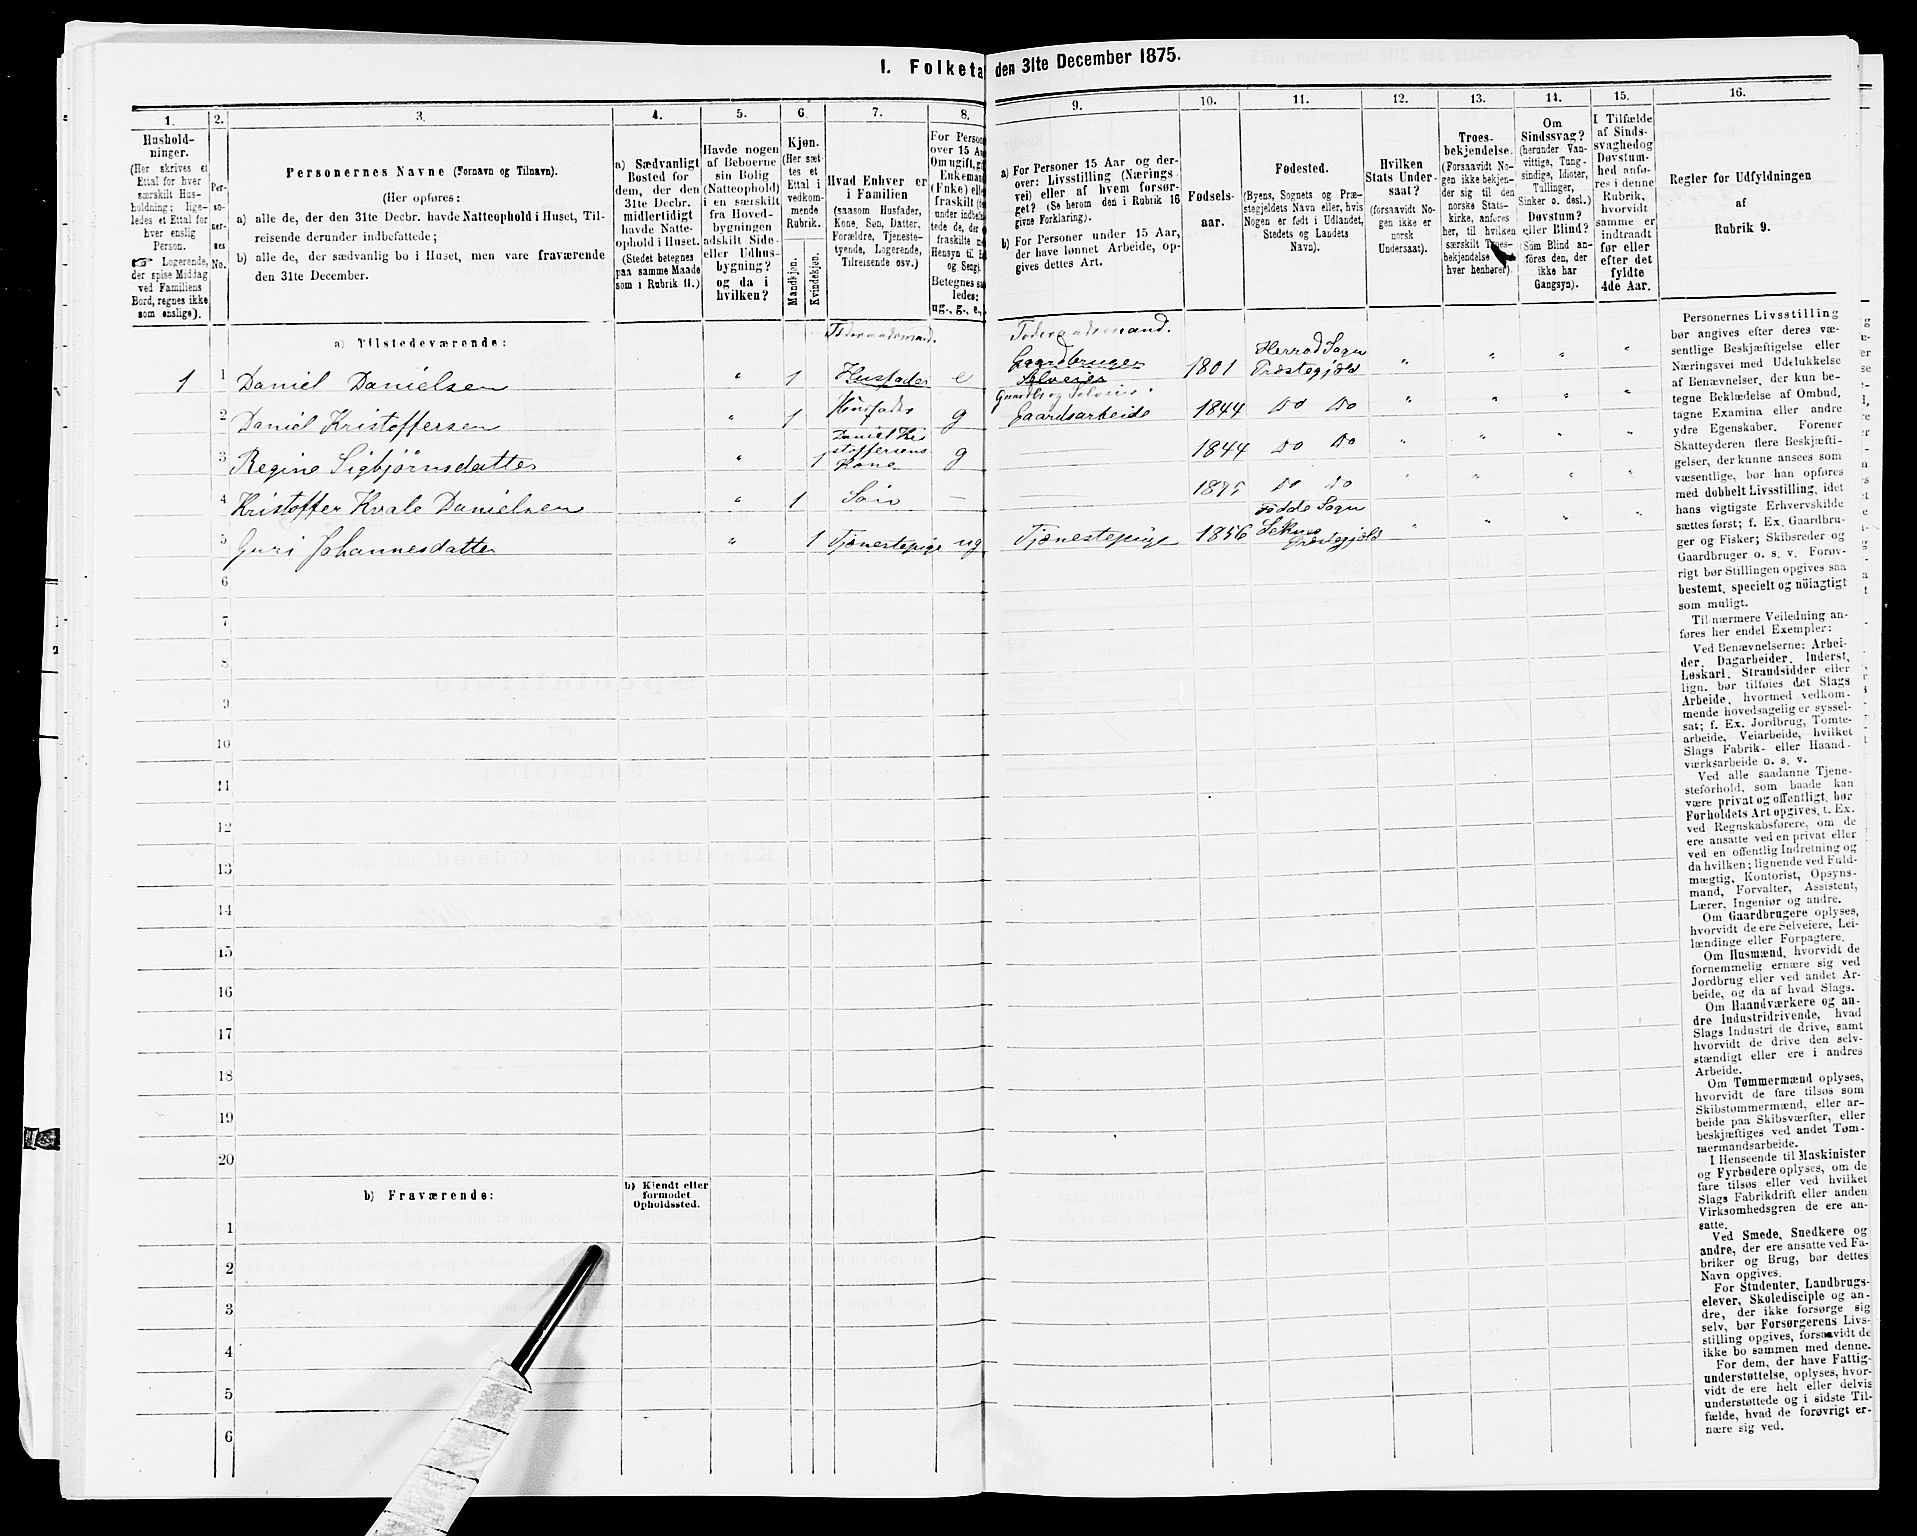 1. Folketa den 31te December 1875.
1.
2.
3.
4.
5.
6.
7.
8.
9.
10.
11.
12.
13.
14.
15.
16.
Hushold-
ninger.
(Her skrives et
Ettal for hver
særskilt Hus-
holdning; lige-
ledes et Ettal for
hver enslig
Person.
☞ Logerende,
der spise Middag
ved Familiens
Bord, regnes ikke
som enslige).
Per-
so-
ner-
nes
No.
Personernes Navne (Fornavn og Tilnavn).
(Her opføres:
a) alle de, der den 31te Decbr. havde Natteophold i Huset, Til-
reisende derunder indbefattede;
b) alle de, der sædvanlig bo i Huset, men vare fraværende
den 31te December.
a) Sædvanligt
Bosted for
dem, der den
31te Decbr.
midlertidigt
havde Natte-
ophold i Huset.
(Stedet betegnes
paa samme Maade
som i Rubrik 11.)
Havde nogen
af Beboerne
sin Bolig
(Natteophold)
i en særskilt
fra Hoved-
bygningen
adskilt Side-
eller Udhus-
bygning?
og da i
hvilken?
Kjøn.
(Her sæt-
tes et
Ettal i
vedkom-
mende
Rubrik.
Mandkjøn.
Kvindekjøn.
Hvad Enhver er
i Familien
(saasom Husfader,
Kone, Søn, Datter,
Forældre, Tjeneste-
tyende, Logerende,
Tilreisende osv.)
For Person
over 15 Aa
Om ugift, g
Enkemand
(Enke) elle
fraskilt (
under indbe
tede de, der
fraskilte
Hensyn til
og Seng).
Betegnes sa
ledes:
ug., g., e.,
a) For Personer 15 Aar og der-
over: Livsstilling (Nærings
vei) eller af hvem forsør-
get? (Se herom den i Rubrik 16
givne Forklaring).
b) For Personer under 15 Aar,
der have lønnet Arbeide, op-
gives dettes Art.
Fødsels-
aar.
Fødested.
(Byens, Sognets og Præ-
stegjeldets Navn eller, hvis
Nogen er født i Udlandet,
Stedets og Landets
Navn).
Hvilken
Stats Under-
saat?
(forsaavidt No-
gen ikke er
norsk
Undersaat).
Troes-
bekjendelse.
(Forsaavidt No-
gen ikke bekjen-
der sig til den
norske Stats-
kirke, anføres
her, til hvilken
særskilt Troes-
bekjendelse
hver henhører).
Om
Sindssvag?
(herunder Van-
vittige, Tung-
sindige, Idioter,
Tullinger,
Sinker o. desl.)
Døvstum?
eller Blind?
(Som Blind an-
føres den, der
ikke har
Gangsyn).
I Tilfælde
af Sinds-
svaghed og
Døvstum-
hed anfø-
res i denne
Rubrik,
hvorvidt
samme er
indtraadt
før eller
efter det
fyldte
4de Aar.
Regler for Udfyldningen
af
Rubrik 9.
a) Tilstedeværende:
Føderaadsmand.
Føderaadsmand.
1 1 Daniel Danielsen " 1 Husfader e Gaardbruger Selveier 1801 Herrød Sogn Præstegjeld " " " "
2 Daniel Kristoffersen " 1 Husfader g Gaardbr og Selveier Gaardsarbeide 1844 Do Do " " " "
3 Regine Sigbjørnsdatter " 1 Daniel Kristoffersens Kone g — 1844 Do Do " " " "
4 Kristoffer Kvale Danielsen " 1 Søn — — 1875 Do Do " " "
5 Guri Johannesdatter " 1 Tjenestepige ug Tjenestepige 1856 Sogn Præstegjeld " " " "
6
7
8
9
10
11
12
13
14
15
16
17
18
19
20
b) Fraværende:
b) Kjendt eller
formodet
Opholdssted.
1
2
3
4
5
6
Personernes Livsstilling
bør angives efter deres væ-
sentlige Beskjæftigelse eller
Næringsvei med Udelukkelse
af Benævnelser, der kun be-
tegne Beklædelse af Ombud,
tagne Examina eller andre
ydre Egenskaber. Forener
Skatteyderen flere Beskjæfti-
gelser, der kunne ansees som
væsentlige, bør han opføres
med dobbelt Livsstilling, idet
hans vigtigste Erhvervskilde
sættes først; f. Ex. Gaardbru-
ger og Fisker; Skibsreder og
Gaardbruger o. s. v. Forøv-
rigt bør Stillingen opgives saa
bestemt, specielt og nöiagtigt
som muligt.
Til nærmere Veiledning an-
føres her endel Exempler:
Ved Benævnelserne: Arbei-
der, Dagarbeider, Inderst,
Løskarl, Strandsidder eller
lign. bør tilføies det Slags
Arbeide, hvormed vedkom-
mende hovedsagelig er syssel-
sat; f. Ex. Jordbrug, Tomte-
arbeide, Veiarbeide, hvilket
Slags Fabrik- eller Haand-
værksarbeide o. s. v.
Ved alle saadanne Tjene-
steforhold, som baade kan
være privat og offentligt, bør
Forholdets Art opgives, t. Ex.
ved Regnskabsførere, om de
ere ansatte ved en privat eller
ved en offentlig Indretning og
da hvilken; lignende ved Fuld-
mægtig, Kontorist, Opsyns-
mand, Forvalter, Assistent,
Lærer, Ingeniør og andre.
Om Gaardbrugere oplyses,
hvorvidt de ere Selveiere, Lei-
lændinge eller Forpagtere.
Om Husmænd, hvorvidt de
fornemmelig ernære sig ved
Jordbrug eller ved andet Ar-
beide, og da af hvad Slags.
Om Haandværkere og an-
dre Industridrivende, hvad
Slags Industri de drive, samt
hvorvidt de drive den selv-
stændigt eller ere i andres
Arbeide.
Om Tømmermænd oplyses,
hvorvidt de fare tilsøs som
Skibstømmermænd, eller ar-
beide paa Skibsværfter, eller
beskjæftiges ved andet Tøm-
mermandsarbeide.
I Henseende til Maskinister
og Fyrbødere oplyses, om de
fare tilsøs eller ved hvilket
Slags Fabrikdrift eller anden
Virksomhedsgren de ere an-
satte.
Ved Smede, Snedkere og
andre, der ere ansatte ved Fa-
briker og Brug, bør dettes
Navn opgives.
For Studenter, Landbrugs-
elever, Skoledisciple og an-
dre, der ikke forsørge sig
selv, bør Forsørgerens Livs-
stilling opgives, forsaavidt de
ikke bo sammen med denne.
For dem, der have Fattig-
understøttelse, oplyses, hvor-
vidt de ere helt eller delvis
understøttede og i sidste Til-
fælde, hvad de forøvrigt er-
nære sig ved.